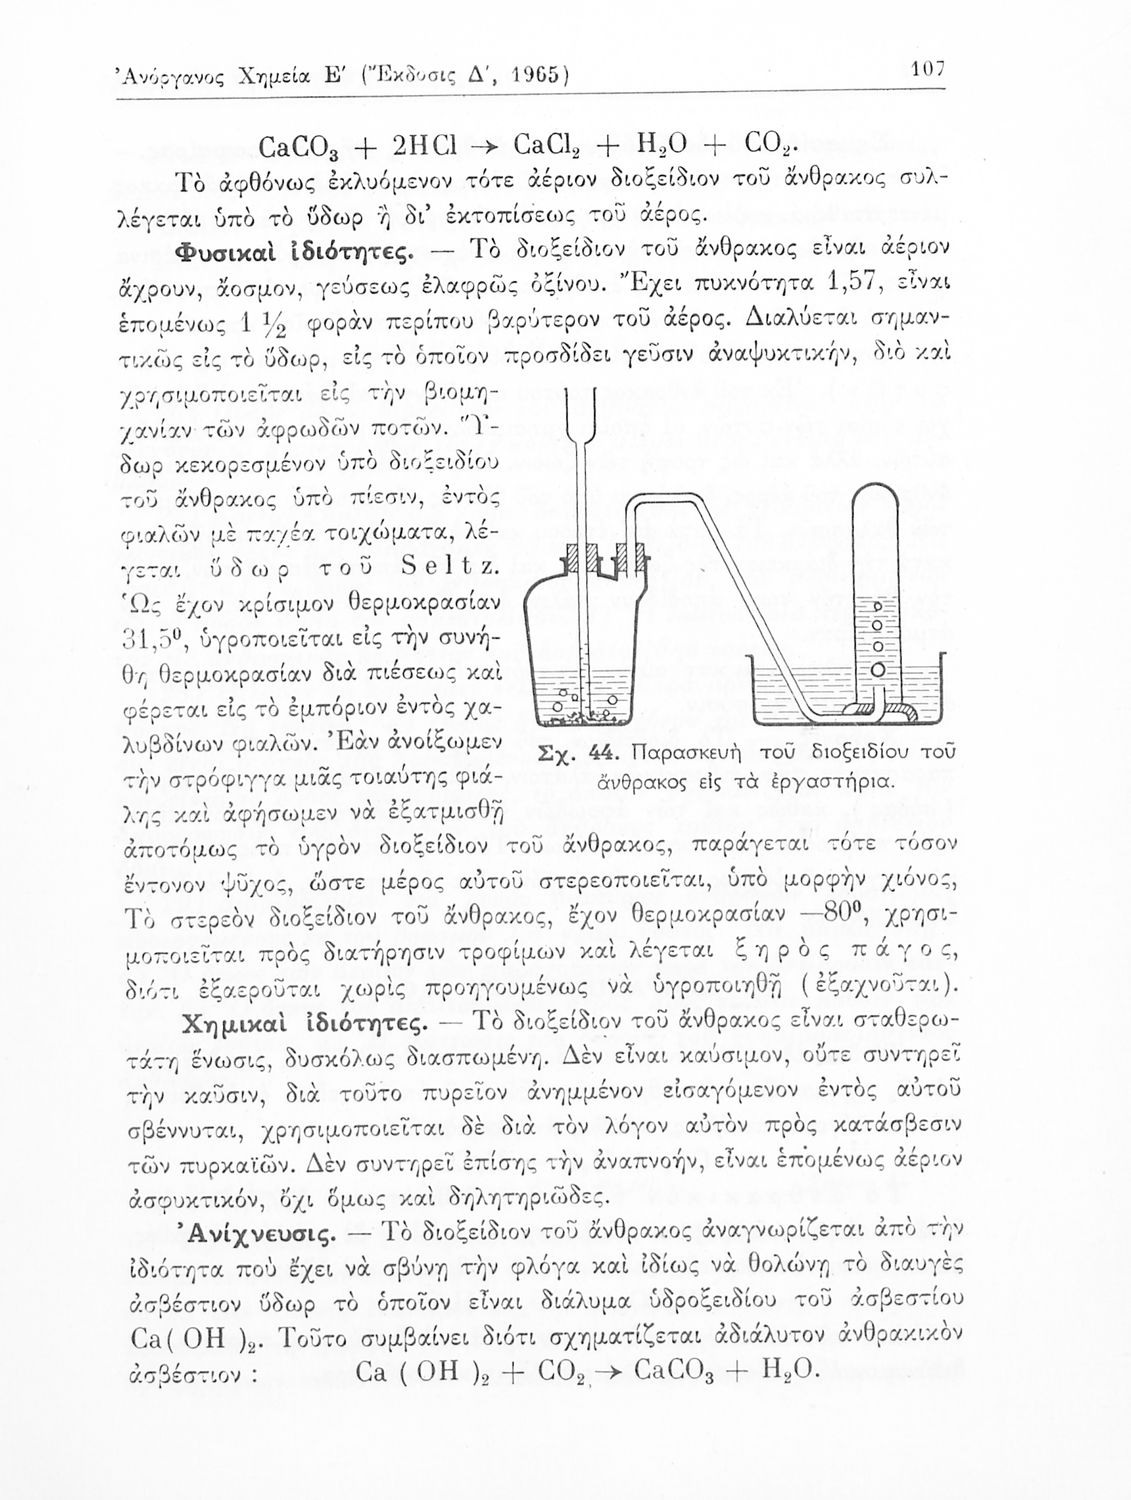 Ἀνόργανος Χημεία Ε' (Ἔκδοσις Δ', 1965)
107
CaCO₃ + 2HCl → CaCl₂ + H₂O + CO₂.
Τὸ ἀφθόνως ἐκλυόμενον τότε ἀέριον διοξείδιον τοῦ ἄνθρακος συλ-
λέγεται ὑπὸ τὸ ὕδωρ ἢ δι' ἐκτοπίσεως τοῦ ἀέρος.
Φυσικαὶ ἰδιότητες. — Τὸ διοξείδιον τοῦ ἄνθρακος εἶναι ἀέριον
ἄχρουν, ἄοσμον, γεύσεως ἐλαφρῶς ὀξίνου. Ἔχει πυκνότητα 1,57, εἶναι
ἑπομένως 1 ½ φορὰν περίπου βαρύτερον τοῦ ἀέρος. Διαλύεται σημαν-
τικῶς εἰς τὸ ὕδωρ, εἰς τὸ ὁποῖον προσδίδει γεῦσιν ἀναψυκτικήν, διὸ καὶ
χρησιμοποιεῖται εἰς τὴν βιομη-
χανίαν τῶν ἀφρωδῶν ποτῶν. Ὕ-
δωρ κεκορεσμένον ὑπὸ διοξειδίου
τοῦ ἄνθρακος ὑπὸ πίεσιν, ἐντὸς
φιαλῶν μὲ παχέα τοιχώματα, λέ-
γεται ὕδωρ τοῦ Seltz.
Ὡς ἔχον κρίσιμον θερμοκρασίαν
31,5⁰, ὑγροποιεῖται εἰς τὴν συνή-
θη θερμοκρασίαν διὰ πιέσεως καὶ
φέρεται εἰς τὸ ἐμπόριον ἐντὸς χα-
λυβδίνων φιαλῶν. Ἐὰν ἀνοίξωμεν
τὴν στρόφιγγα μιᾶς τοιαύτης φιά-
λης καὶ ἀφήσωμεν νὰ ἐξατμισθῇ
Σχ. 44. Παρασκευὴ τοῦ διοξειδίου τοῦ
ἄνθρακος εἰς τὰ ἐργαστήρια.
ἀποτόμως τὸ ὑγρὸν διοξείδιον τοῦ ἄνθρακος, παράγεται τότε τόσον
ἔντονον ψῦχος, ὥστε μέρος αὐτοῦ στερεοποιεῖται, ὑπὸ μορφὴν χιόνος,
Τὸ στερεὸν διοξείδιον τοῦ ἄνθρακος, ἔχον θερμοκρασίαν —80⁰, χρησι-
μοποιεῖται πρὸς διατήρησιν τροφίμων καὶ λέγεται ξηρὸς πάγος,
διότι ἐξαεροῦται χωρὶς προηγουμένως νὰ ὑγροποιηθῇ (ἐξαχνοῦται).
Χημικαὶ ἰδιότητες. — Τὸ διοξείδιον τοῦ ἄνθρακος εἶναι σταθερω-
τάτη ἕνωσις, δυσκόλως διασπωμένη. Δὲν εἶναι καύσιμον, οὔτε συντηρεῖ
τὴν καῦσιν, διὰ τοῦτο πυρεῖον ἀνημμένον εἰσαγόμενον ἐντὸς αὐτοῦ
σβέννυται, χρησιμοποιεῖται δὲ διὰ τὸν λόγον αὐτὸν πρὸς κατάσβεσιν
τῶν πυρκαϊῶν. Δὲν συντηρεῖ ἐπίσης τὴν ἀναπνοήν, εἶναι ἑπομένως ἀέριον
ἀσφυκτικόν, ὄχι ὅμως καὶ δηλητηριῶδες.
Ἀνίχνευσις. — Τὸ διοξείδιον τοῦ ἄνθρακος ἀναγνωρίζεται ἀπὸ τὴν
ἰδιότητα ποὺ ἔχει νὰ σβύνῃ τὴν φλόγα καὶ ἰδίως νὰ θολώνῃ τὸ διαυγὲς
ἀσβέστιον ὕδωρ τὸ ὁποῖον εἶναι διάλυμα ὑδροξειδίου τοῦ ἀσβεστίου
Ca( OH )₂. Τοῦτο συμβαίνει διότι σχηματίζεται ἀδιάλυτον ἀνθρακικὸν
ἀσβέστιον : Ca ( OH )₂ + CO₂ → CaCO₃ + H₂O.